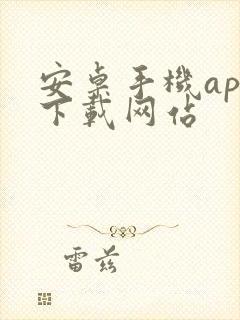 安桌手機ap
下載网佔
雷兹